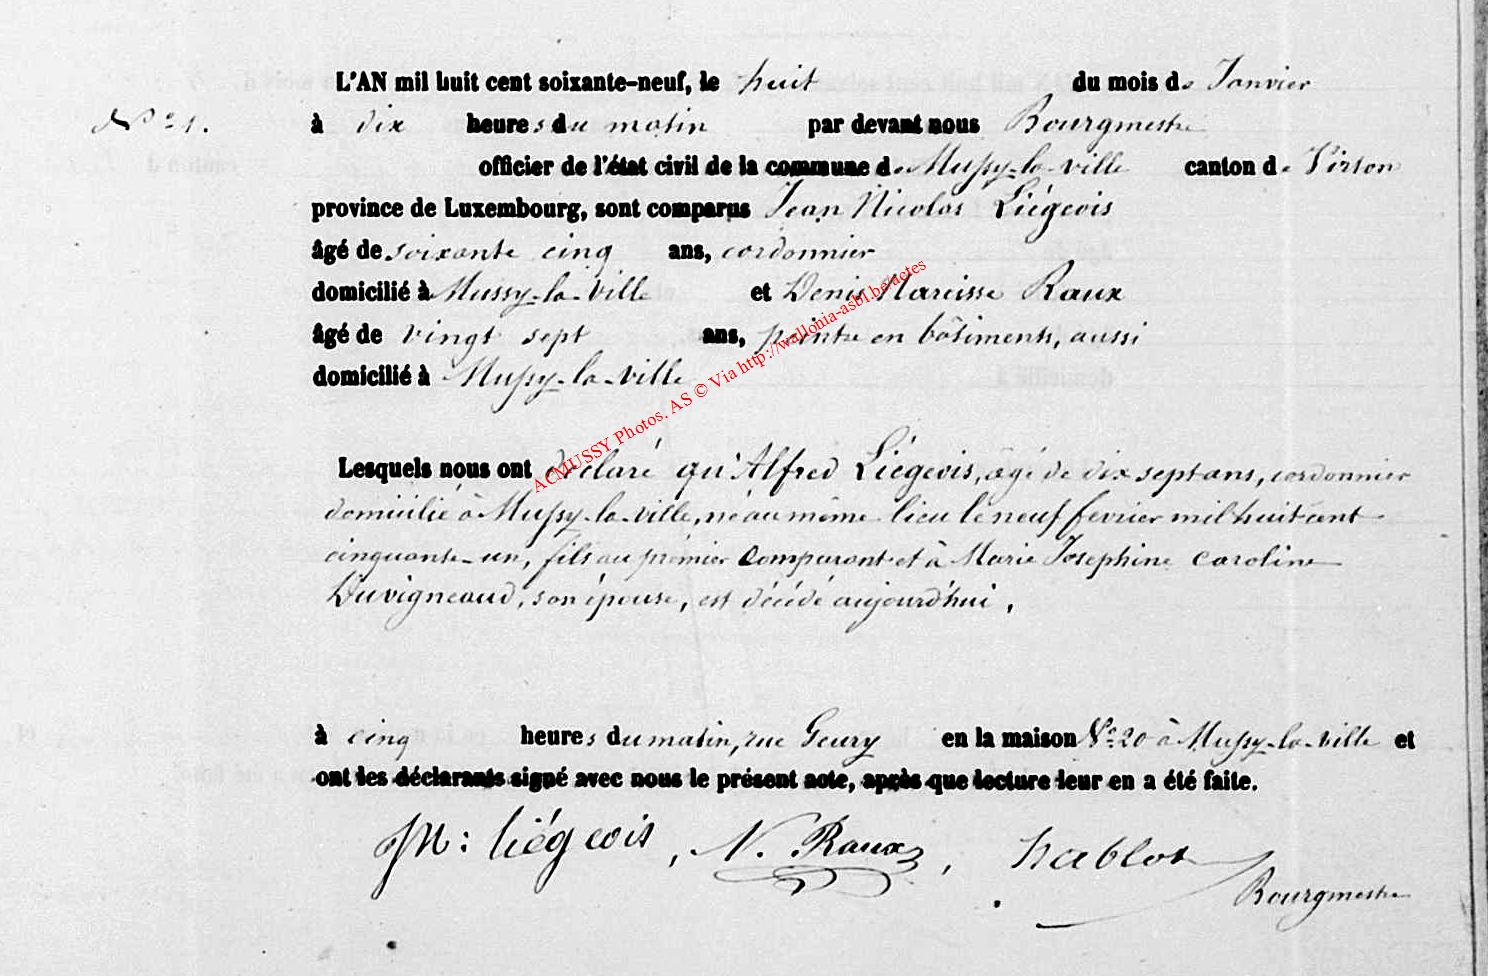 L'AN mil huit cent soixante-neuf, le huit du mois de Janvier
N° 1. à dix heures du matin par devant nous Bourgmestre
officier de l'état civil de la commune de Mussy-la-ville canton de Virton
province de Luxembourg, sont comparus Jean Nicolas Liégeois
âgé de soixante cinq ans, cordonnier
domicilié à Mussy-la-Ville et Denis Narcisse Raux
âgé de vingt sept ans, peintre en bâtiments, aussi
domicilié à Mussy-la-ville
ACMUSSY Photos. AS © Via http://wallonia-asbl.be/actes
Lesquels nous ont déclaré qu'Alfred Liégeois, âgé de dix sept ans, cordonnier
domicilié à Mussy-la-ville, né au même lieu le neuf février mil huit cent
cinquante-un, fils au premier Comparant et à Marie Josephine Caroline
Duvigneaud, son épouse, est décédé aujourd'hui,
à cinq heures du matin, rue Geury en la maison N° 20 à Mussy-la-Ville et
ont les déclarants signé avec nous le présent acte, après que lecture leur en a été faite.
JN: Liégeois, N. Raux, hablot
Bourgmestre